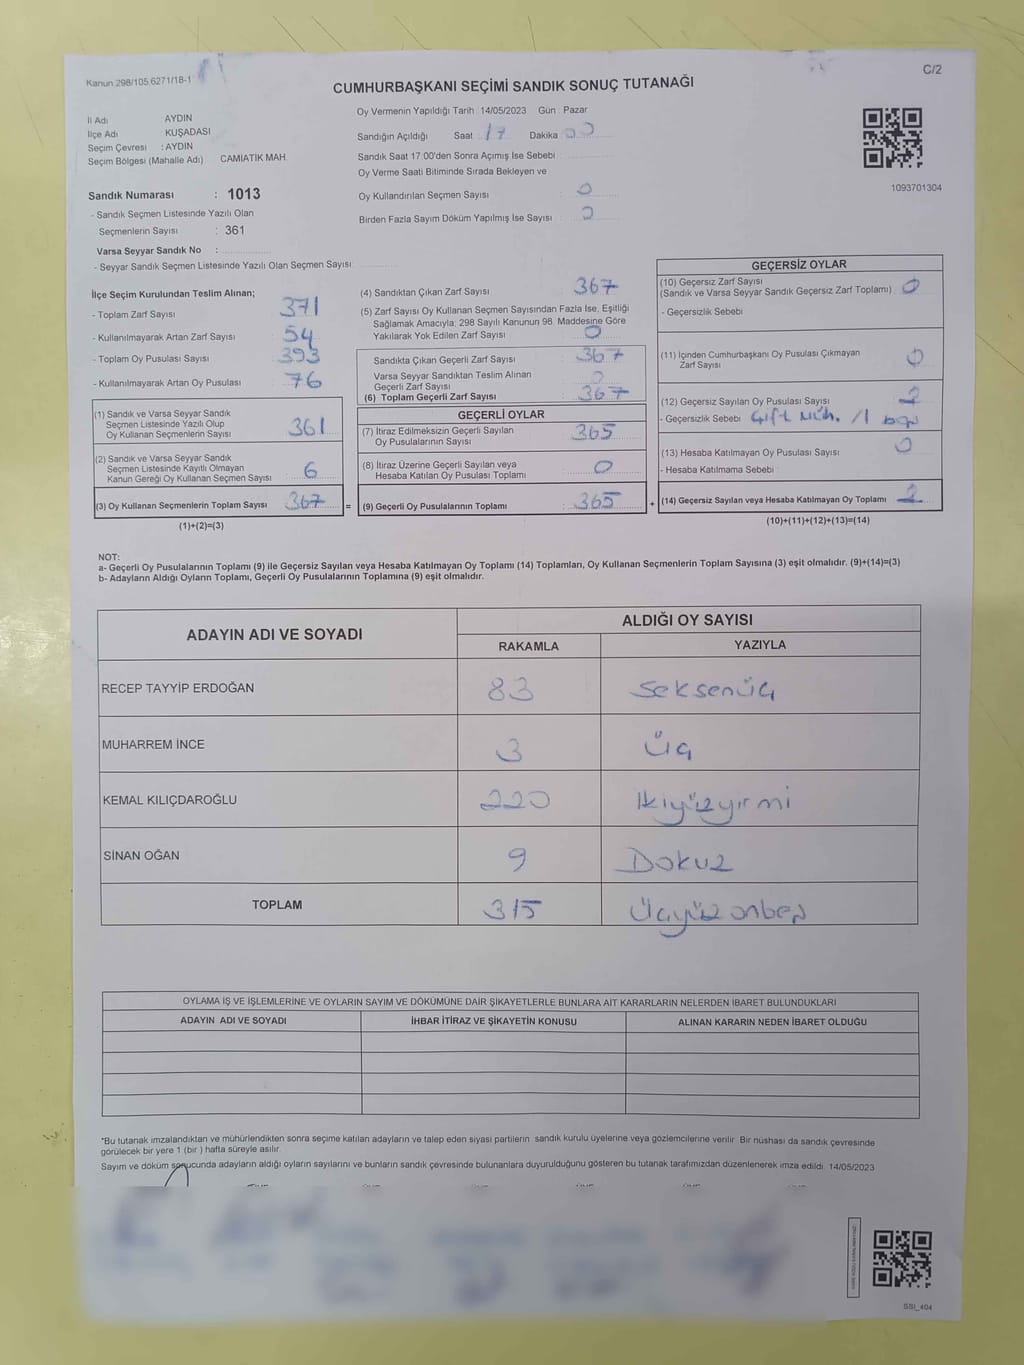 Kanun 298/105,6271/18-1
C/2
CUMHURBAŞKANI SEÇİMİ SANDIK SONUÇ TUTANAĞI
İl Adı AYDIN
İlçe Adı KUŞADASI
Seçim Çevresi : AYDIN
Seçim Bölgesi (Mahalle Adı) CAMİATİK MAH.
Sandık Numarası : 1013
- Sandık Seçmen Listesinde Yazılı Olan
Seçmenlerin Sayısı : 361
Varsa Seyyar Sandık No :
- Seyyar Sandık Seçmen Listesinde Yazılı Olan Seçmen Sayısı:
Oy Vermenin Yapıldığı Tarih : 14/05/2023 Gün : Pazar
Sandığın Açıldığı Saat : 17 Dakika 00
Sandık Saat 17:00'den Sonra Açımış İse Sebebi :
Oy Verme Saati Bitiminde Sırada Bekleyen ve
Oy Kullandırılan Seçmen Sayısı : 0
Birden Fazla Sayım Döküm Yapılmış İse Sayısı : 0
1093701304
İlçe Seçim Kurulundan Teslim Alınan;
- Toplam Zarf Sayısı : 371
- Kullanılmayarak Artan Zarf Sayısı : 54
- Toplam Oy Pusulası Sayısı : 393
- Kullanılmayarak Artan Oy Pusulası : 76
(1) Sandık ve Varsa Seyyar Sandık
Seçmen Listesinde Yazılı Olup
Oy Kullanan Seçmenlerin Sayısı 361
(2) Sandık ve Varsa Seyyar Sandık
Seçmen Listesinde Kayıtlı Olmayan
Kanun Gereği Oy Kullanan Seçmen Sayısı : 6
(3) Oy Kullanan Seçmenlerin Toplam Sayısı : 367
(1)+(2)=(3)
(4) Sandıktan Çıkan Zarf Sayısı : 367
(5) Zarf Sayısı Oy Kullanan Seçmen Sayısından Fazla İse, Eşitliği
Sağlamak Amacıyla; 298 Sayılı Kanunun 98. Maddesine Göre
Yakılarak Yok Edilen Zarf Sayısı : 0
Sandıkta Çıkan Geçerli Zarf Sayısı : 367
Varsa Seyyar Sandıktan Teslim Alınan
Geçerli Zarf Sayısı : 0
(6) Toplam Geçerli Zarf Sayısı : 367
GEÇERLİ OYLAR
(7) İtiraz Edilmeksizin Geçerli Sayılan
Oy Pusulalarının Sayısı : 365
(8) İtiraz Üzerine Geçerli Sayılan veya
Hesaba Katılan Oy Pusulası Toplamı : 0
= (9) Geçerli Oy Pusulalarının Toplamı : 365
GEÇERSİZ OYLAR
(10) Geçersiz Zarf Sayısı
(Sandık ve Varsa Seyyar Sandık Geçersiz Zarf Toplamı) : 0
- Geçersizlik Sebebi :
(11) İçinden Cumhurbaşkanı Oy Pusulası Çıkmayan
Zarf Sayısı : 0
(12) Geçersiz Sayılan Oy Pusulası Sayısı : 2
- Geçersizlik Sebebi : Çift Müh. /1
(13) Hesaba Katılmayan Oy Pusulası Sayısı : 0
- Hesaba Katılmama Sebebi :
+ (14) Geçersiz Sayılan veya Hesaba Katılmayan Oy Toplamı : 2
(10)+(11)+(12)+(13)=(14)
NOT:
a- Geçerli Oy Pusulalarının Toplamı (9) ile Geçersiz Sayılan veya Hesaba Katılmayan Oy Toplamı (14) Toplamları, Oy Kullanan Seçmenlerin Toplam Sayısına (3) eşit olmalıdır. (9)+(14)=(3)
b- Adayların Aldığı Oyların Toplamı, Geçerli Oy Pusulalarının Toplamına (9) eşit olmalıdır.
ADAYIN ADI VE SOYADI ALDIĞI OY SAYISI
RAKAMLA YAZIYLA
RECEP TAYYİP ERDOĞAN 83 Seksenüç
MUHARREM İNCE 3 Üç
KEMAL KILIÇDAROĞLU 220 İkiyüzyirmi
SİNAN OĞAN 9 Dokuz
TOPLAM 315 Üçyüzonbeş
OYLAMA İŞ VE İŞLEMLERİNE VE OYLARIN SAYIM VE DÖKÜMÜNE DAİR ŞİKAYETLERLE BUNLARA AİT KARARLARIN NELERDEN İBARET BULUNDUKLARI
ADAYIN ADI VE SOYADI İHBAR İTİRAZ VE ŞİKAYETİN KONUSU ALINAN KARARIN NEDEN İBARET OLDUĞU
*Bu tutanak imzalandıktan ve mühürlendikten sonra seçime katılan adayların ve talep eden siyasi partilerin sandık kurulu üyelerine veya gözlemcilerine verilir. Bir nüshası da sandık çevresinde
görülecek bir yere 1 (bir ) hafta süreyle asılır.
Sayım ve döküm sonucunda adayların aldığı oyların sayılarını ve bunların sandık çevresinde bulunanlara duyurulduğunu gösteren bu tutanak tarafımızdan düzenlenerek imza edildi. 14/05/2023
SSI_404